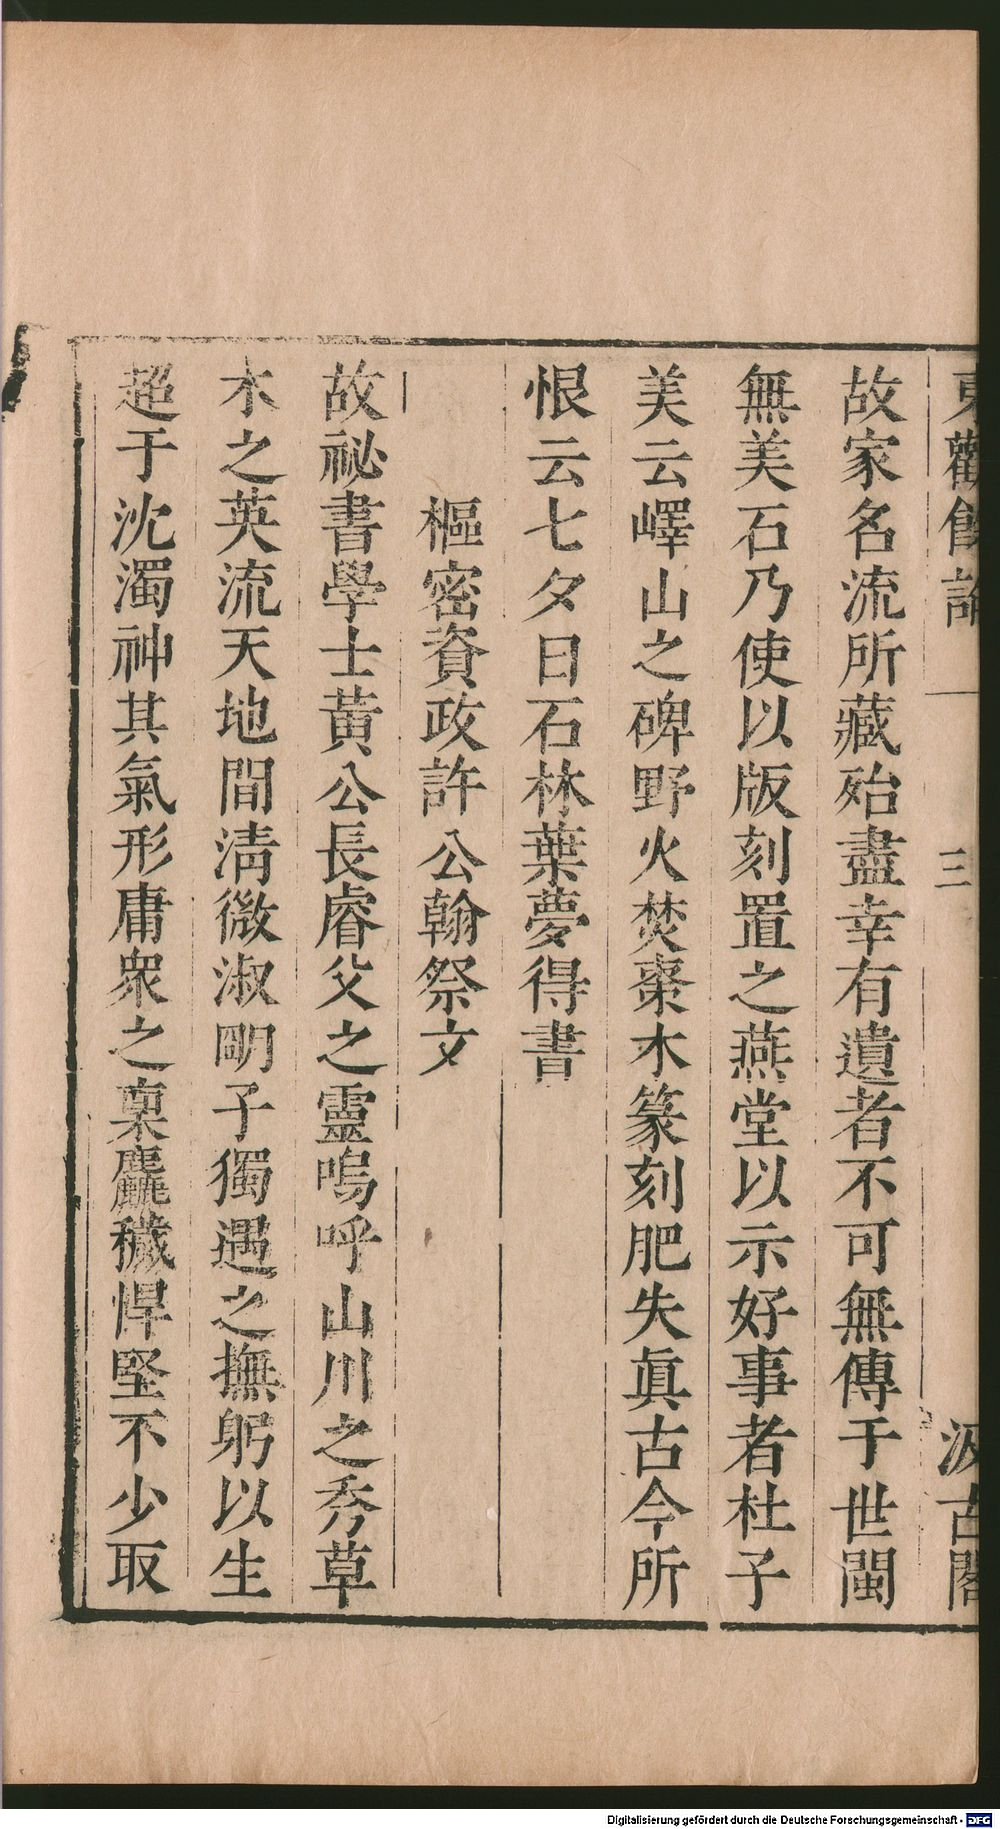 東觀餘論
三
汲古閣
故家名流所藏殆盡幸有遺者不可無傳于世閩
無美石乃使以版刻置之燕堂以示好事者杜子
美云嶧山之碑野火焚棗木篆刻肥失眞古今所
恨云七夕日石林葉夢得書
樞密資政許公翰祭文
故祕書學士黃公長睿父之靈嗚呼山川之秀草
木之英流天地間淸微淑朙子獨遇之撫躬以生
超于沈濁神其氣形庸衆之稟麤穢悍堅不少取
Digitalisierung gefördert durch die Deutsche Forschungsgemeinschaft - DFG